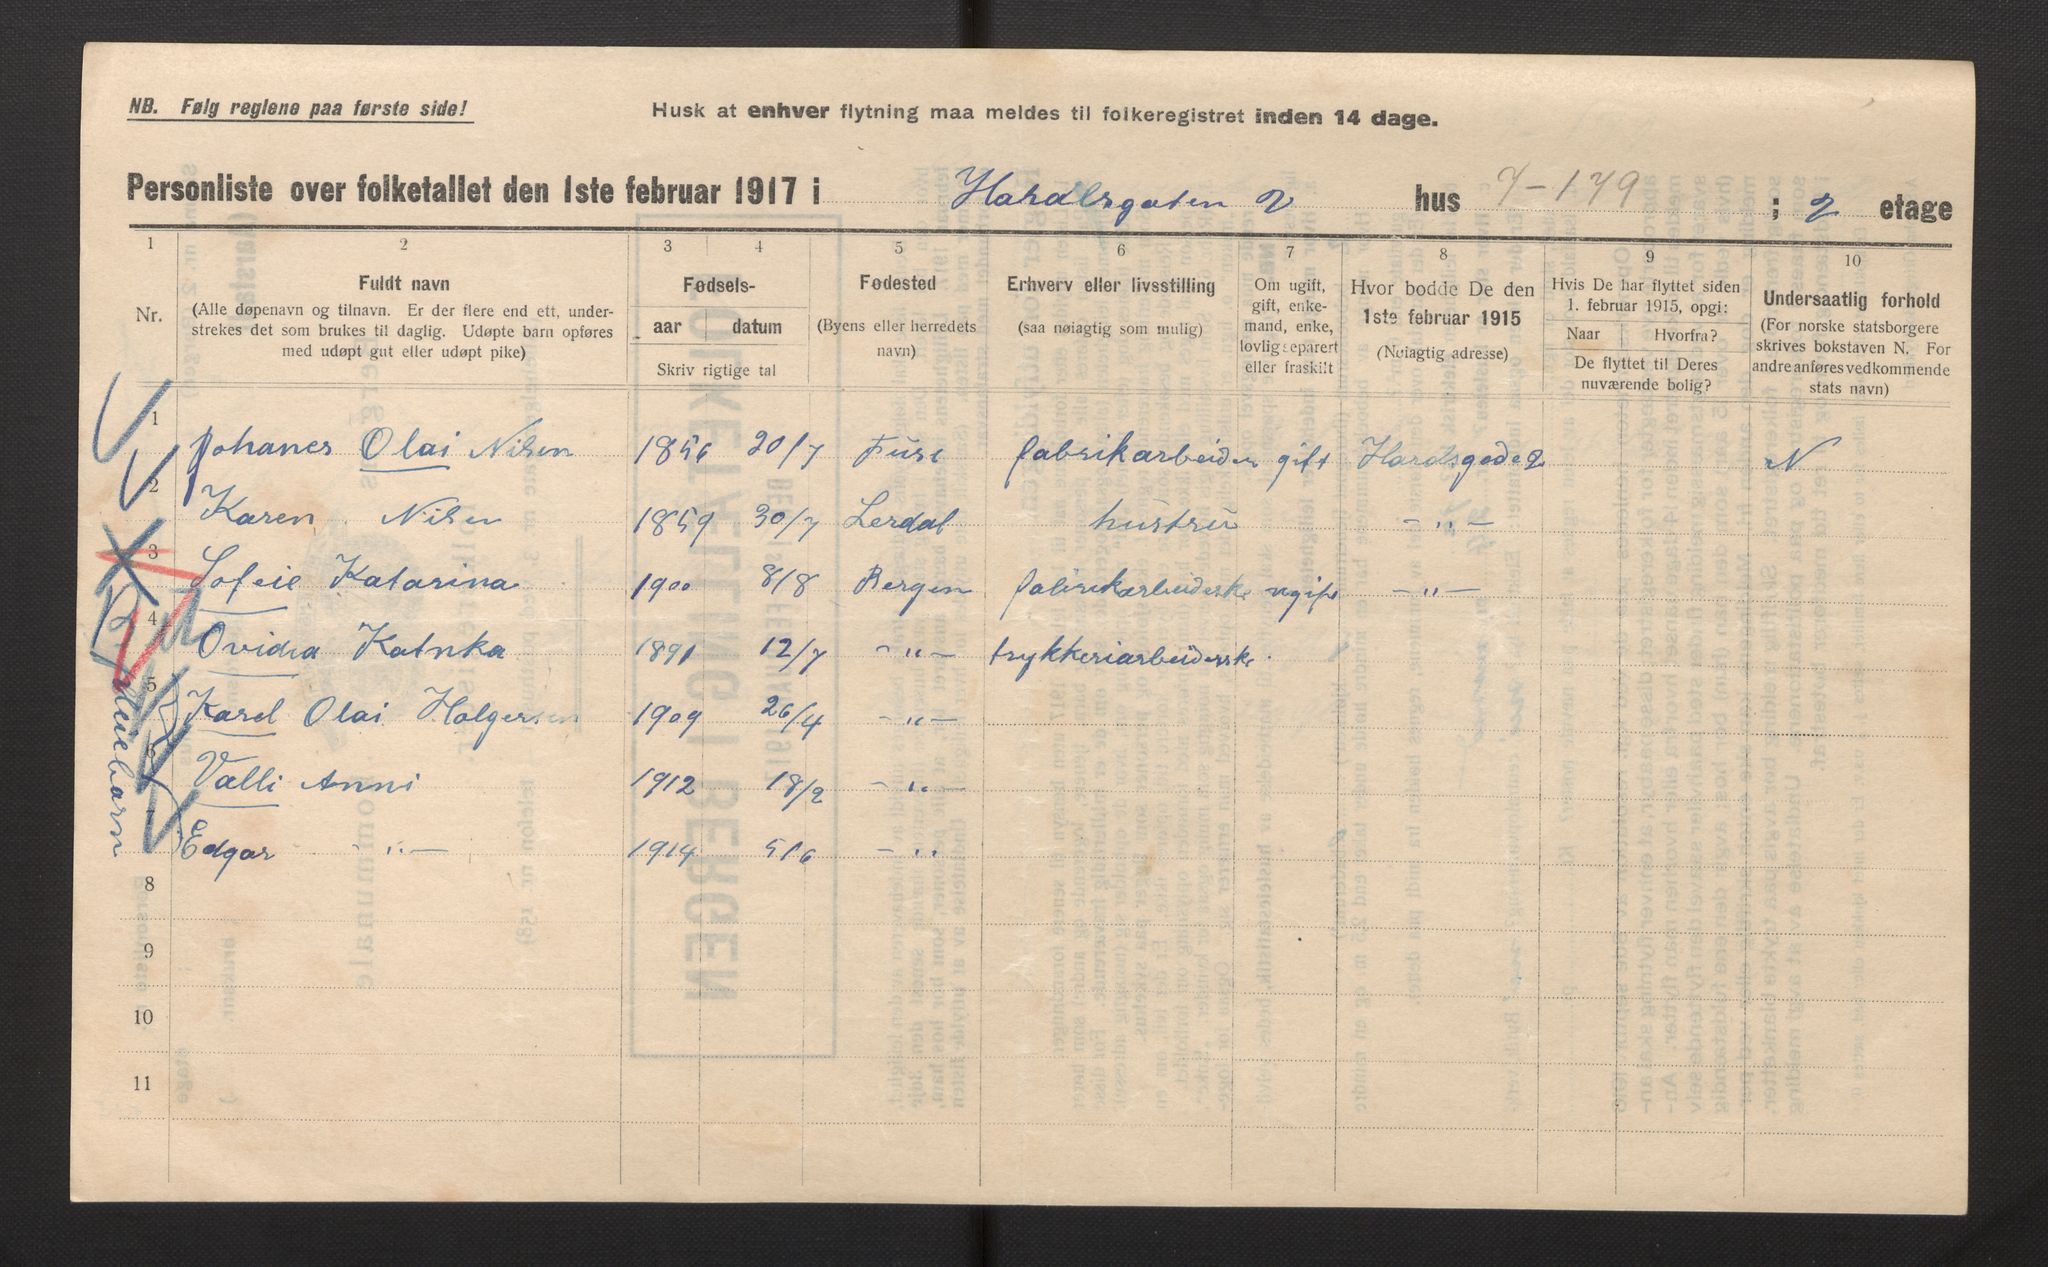 NB. Følg reglene paa første side!
Husk at enhver flytning maa meldes til folkeregistret inden 14 dage.
Personliste over folketallet den 1ste februar 1917 i Haralsgaten 2 hus 7-179 ; 2 etage
1 2 3 4 5 6 7 8 9 10
Nr.
Fuldt navn
(Alle døpenavn og tilnavn. Er der flere end ett, under-
strekes det som brukes til daglig. Udøpte barn opføres
med udøpt gut eller udøpt pike)
Fødsels-
aar datum
Skriv rigtige tal
Fødested
(Byens eller herredets
navn)
Erhverv eller livsstilling
(saa nøiagtig som mulig)
Om ugift,
gift, enke-
mand, enke,
lovlig separert
eller fraskilt
Hvor bodde De den
1ste februar 1915
(Nøiagtig adresse)
Hvis De har flyttet siden
1. februar 1915, opgi:
Naar Hvorfra?
De flyttet til Deres
nuværende bolig?
Undersaatlig forhold
(For norske statsborgere
skrives bokstaven N. For
andre anføres vedkommende
stats navn)
1 Johanes Olai Nilsen 1856 20/7 Fuse fabrikarbeider gift Hardsgade 2 N
2 Karen Nilsen 1859 30/7 Lerdal hustru -"-
3 Sofeie Katarina 1900 8/8 Bergen fabrikarbeideske ugift -"-
4 Ovidia Katinka 1891 12/7 -"- trykkeriarbeiderske.
5 Karel Olai Holgersen 1909 26/4 -"-
6 Valli Anni 1912 18/2 -"-
7 Edgar -"- 1914 5/6 -"-
Pleiebarn
8
9
10
11